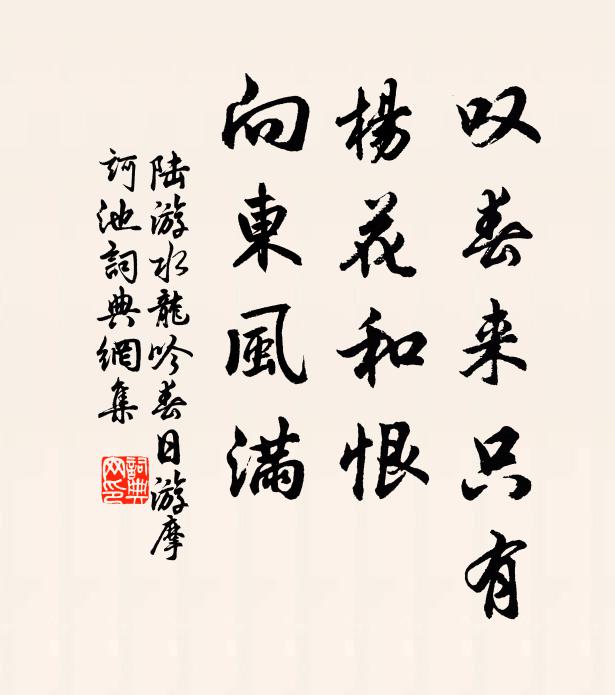 叹春来只有
楊花和恨
向東風滿
陆游水龍吟春日游摩
訶池詞典網集
詞典
网印